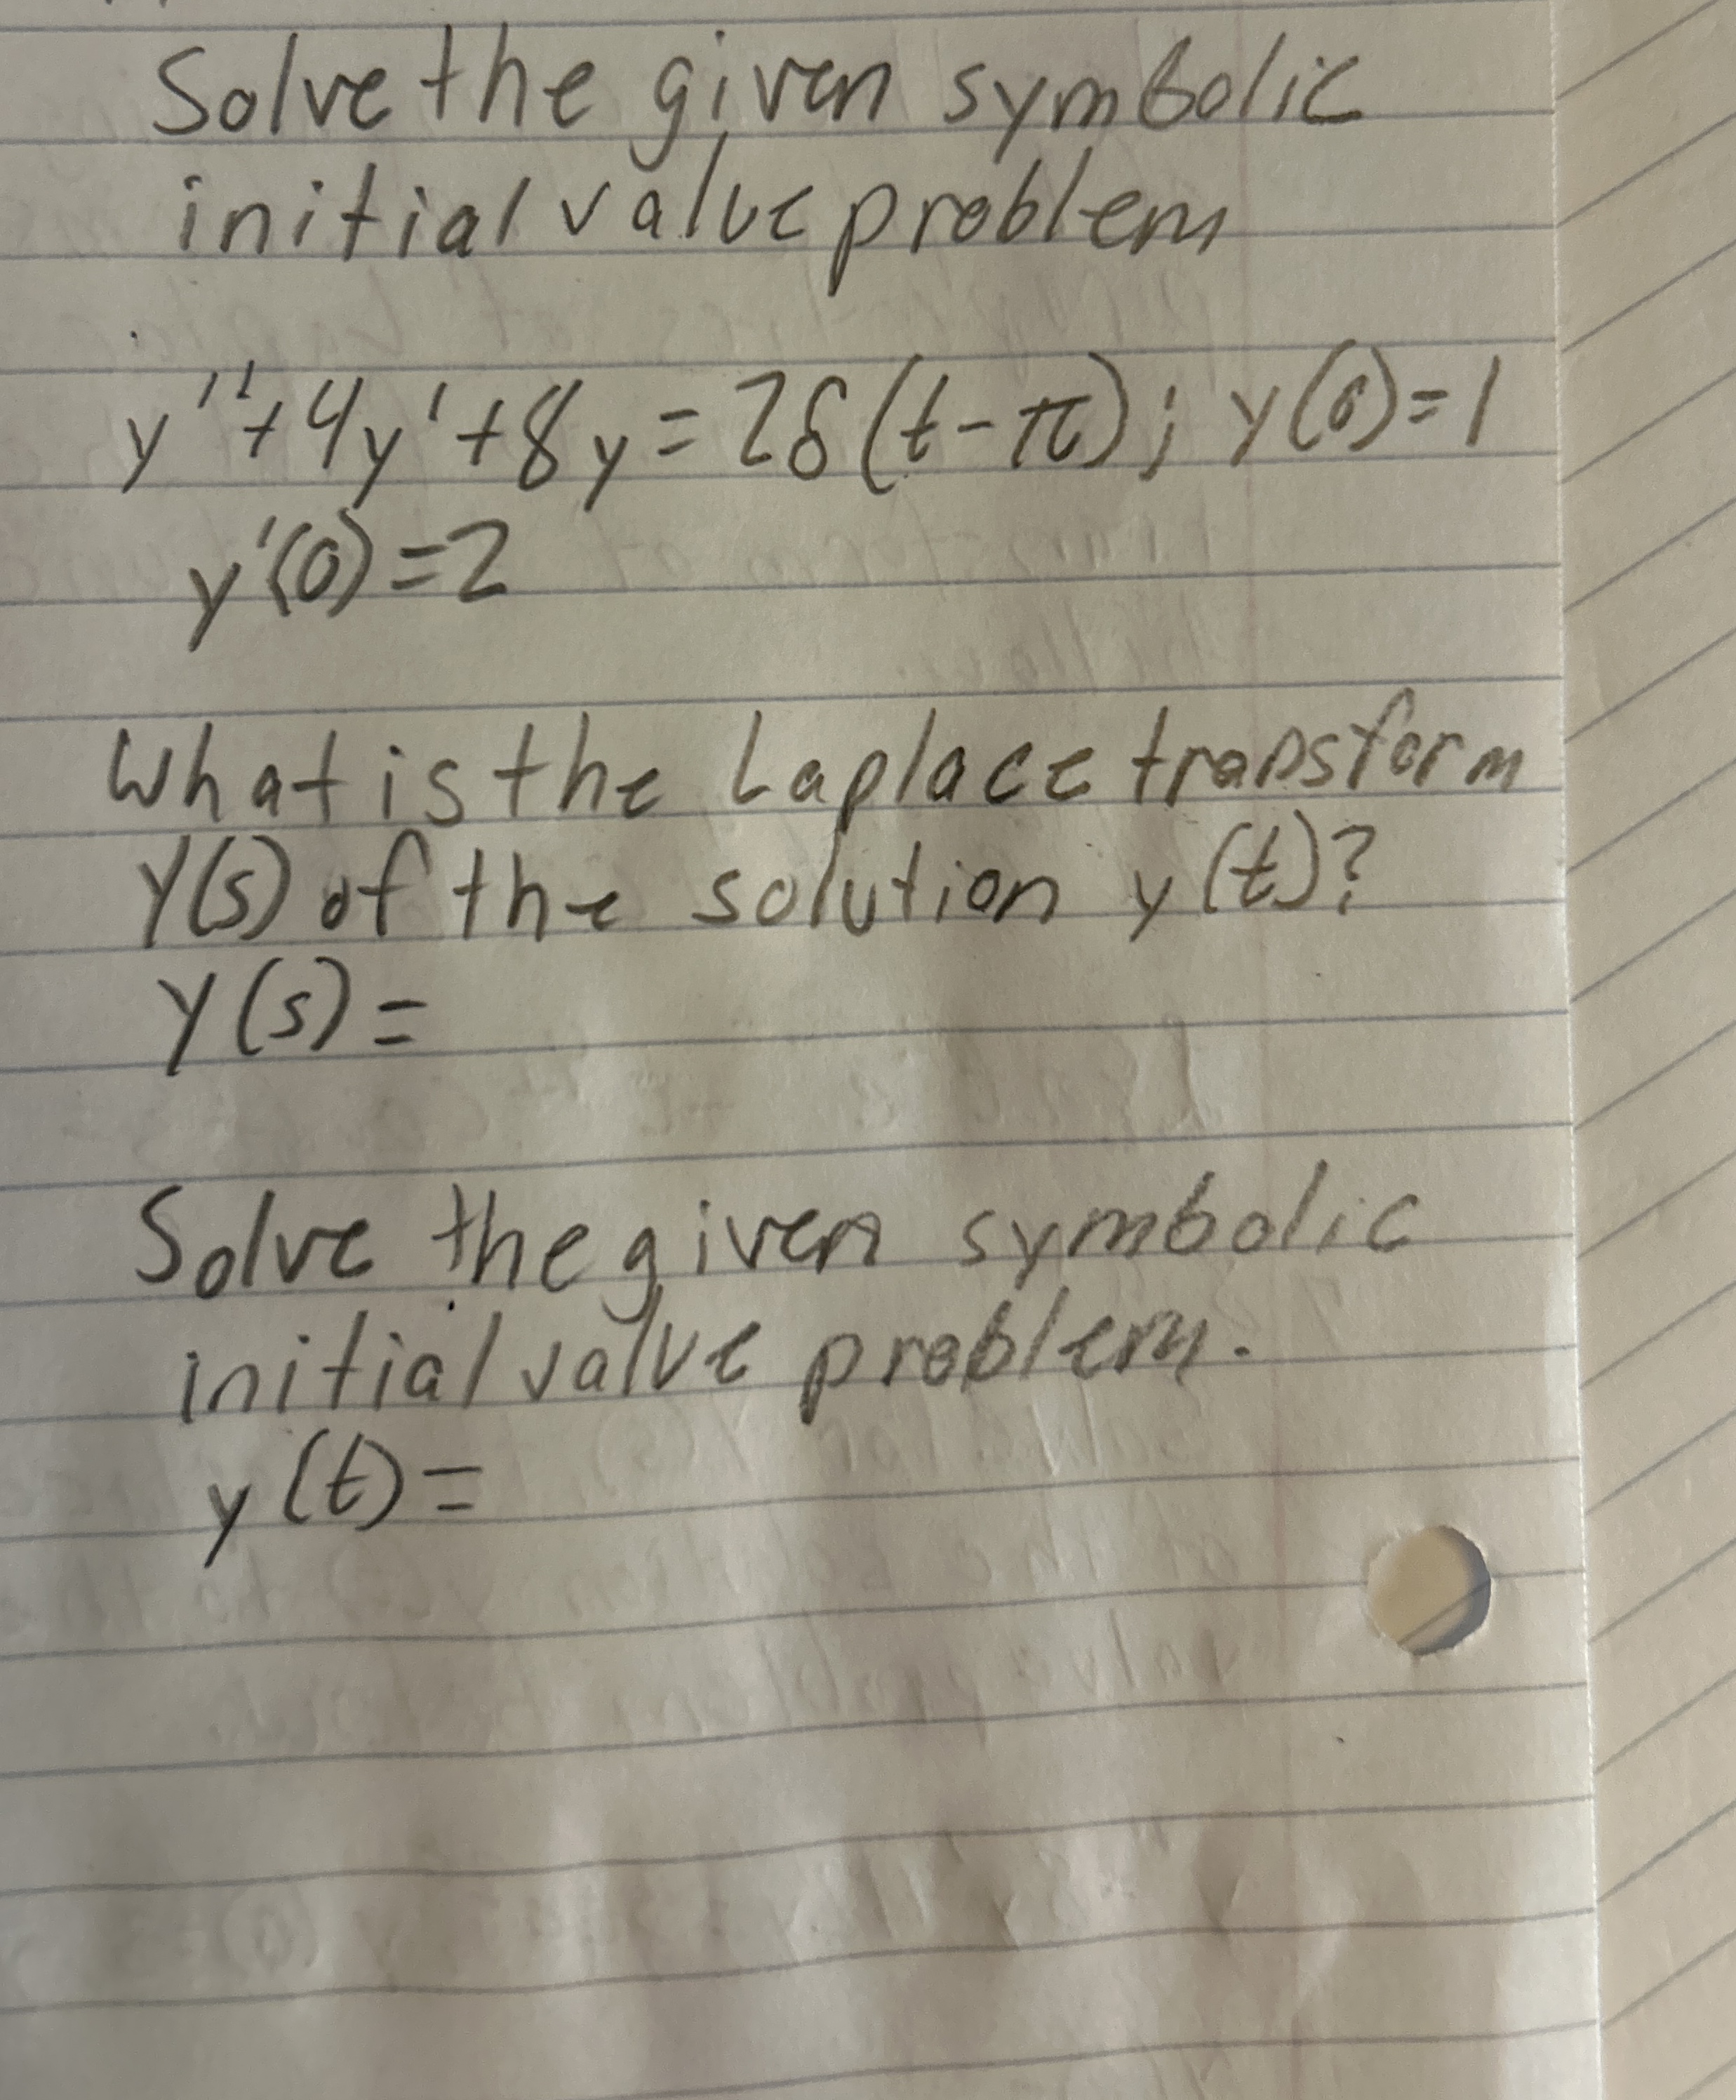 Solve the given symbolic
initial value problem
y''+4y'+8y=2δ(t-π); y(0)=1
y'(0)=2
What is the Laplace transform
Y(s) of the solution y(t)?
Y(s)=
Solve the given symbolic
initial value problem.
y(t)=